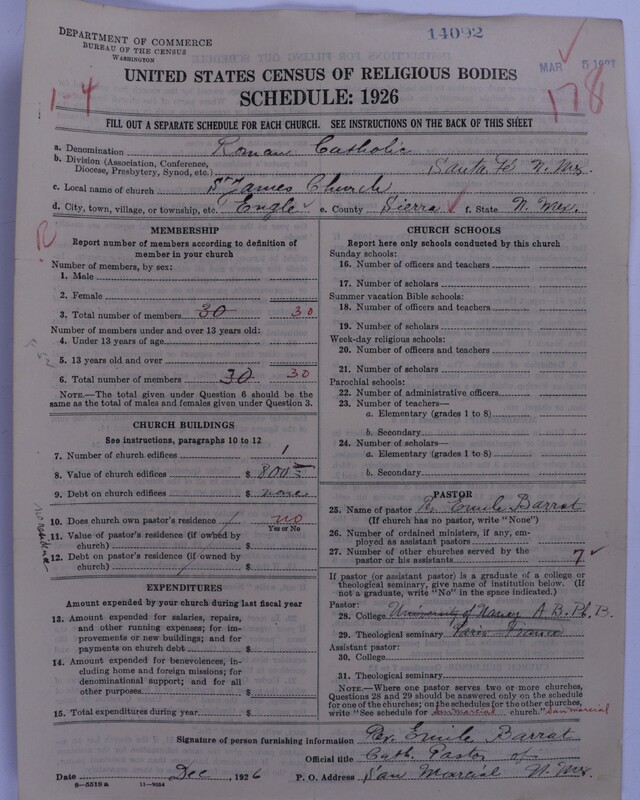 DEPARTMENT OF COMMERCE
BUREAU OF THE CENSUS
WASHINGTON
14092
MAR 5 1927
1-4
178
UNITED STATES CENSUS OF RELIGIOUS BODIES
SCHEDULE: 1926
FILL OUT A SEPARATE SCHEDULE FOR EACH CHURCH. SEE INSTRUCTIONS ON THE BACK OF THIS SHEET
a. Denomination Roman Catholic
b. Division (Association, Conference, Diocese, Presbytery, Synod, etc.) Santa Fé N. Mex.
c. Local name of church St James Church
d. City, town, village, or township, etc. Engle e. County Sierra f. State N. Mex.
R
MEMBERSHIP
Report number of members according to definition of
member in your church
Number of members, by sex:
1. Male
2. Female
3. Total number of members 30 30
Number of members under and over 13 years old:
4. Under 13 years of age
5. 13 years old and over
6. Total number of members 30 30
NOTE.—The total given under Question 6 should be
same as the total of males and females given under Question 3.
CHURCH BUILDINGS
See instructions, paragraphs 10 to 12
7. Number of church edifices 1
8. Value of church edifices $ 800
9. Debt on church edifices $ none
10. Does church own pastor's residence no
Yes or No
11. Value of pastor's residence (if owned by
church) $
12. Debt on pastor's residence (if owned by
church) $
EXPENDITURES
Amount expended by your church during last fiscal year
13. Amount expended for salaries, repairs,
and other running expenses; for im-
provements or new buildings; and for
payments on church debt $
14. Amount expended for benevolences, in-
cluding home and foreign missions; for
denominational support; and for all
other purposes $
15. Total expenditures during year $
CHURCH SCHOOLS
Report here only schools conducted by this church
Sunday schools:
16. Number of officers and teachers
17. Number of scholars
Summer vacation Bible schools:
18. Number of officers and teachers
19. Number of scholars
Week-day religious schools:
20. Number of officers and teachers
21. Number of scholars
Parochial schools:
22. Number of administrative officers
23. Number of teachers—
a. Elementary (grades 1 to 8)
b. Secondary
24. Number of scholars—
a. Elementary (grades 1 to 8)
b. Secondary
PASTOR
25. Name of pastor Rev. Emile Barrat
(If church has no pastor, write "None")
26. Number of ordained ministers, if any, em-
ployed as assistant pastors
27. Number of other churches served by the
pastor or his assistants 7
If pastor (or assistant pastor) is a graduate of a college or
theological seminary, give name of institution below. (If
not a graduate, write "No" in the space indicated.)
Pastor:
28. College University of Nancy A. B. Ph. B.
29. Theological seminary Paris France
Assistant pastor:
30. College
31. Theological seminary
NOTE.—Where one pastor serves two or more churches,
Questions 28 and 29 should be answered only on the schedule
for one of the churches; on the schedules for the other churches,
write "See schedule for San marcial church." San marcial
Signature of person furnishing information Rev. Emile Barrat
Official title Cath. Pastor of
Date Dec, 1926 P. O. Address San Marcial N. Mex
8—5518a 11—9054